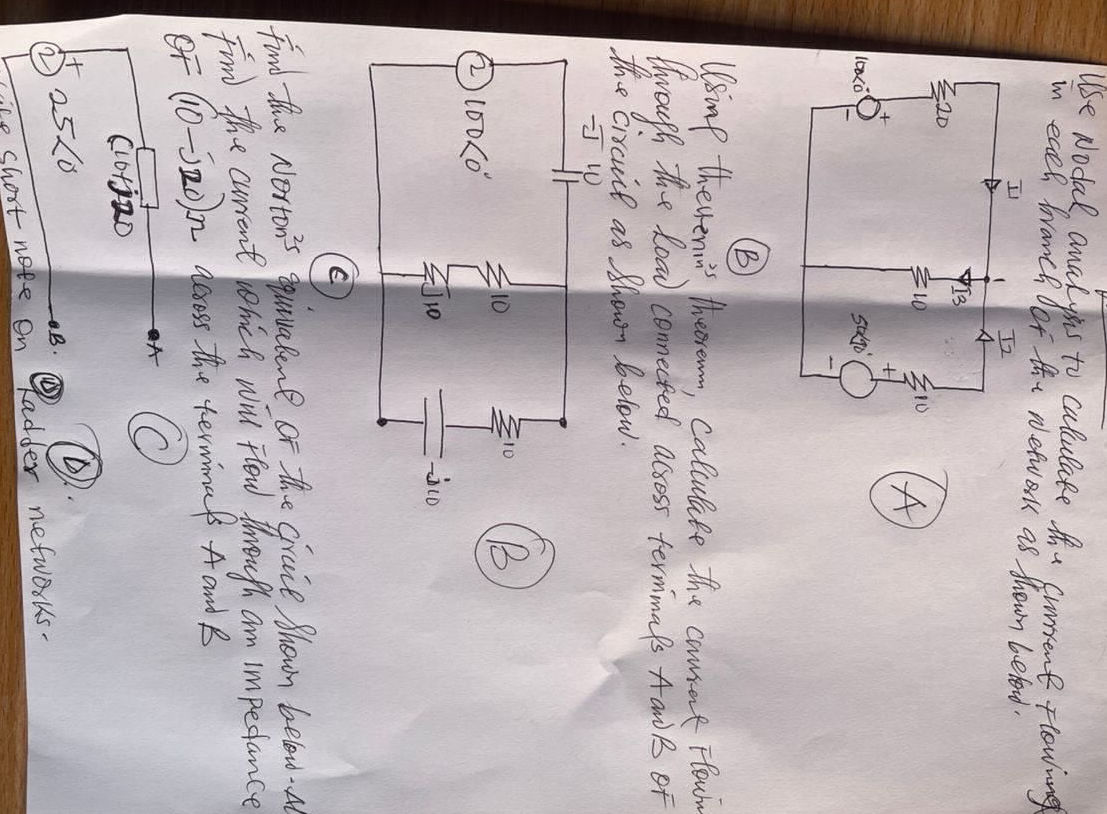 Use Nodal analysis to calculate the current Flowing
in each branch of the network as shown below.
I1
I2
20
1
I3
10
10
100<0°
+
-
50<90°
+
-
A
B
Using thevenin's theorem, calculate the current Flowin
through the load connected across terminals A and B of
the circuit as shown below.
-J10
100<0°
10
J10
10
-j10
B
C
Find the Norton's equivalent of the circuit shown below. Al
Find the current which will Flow through an impedance
of (10-j20)Ω across the terminals A and B
(10+j20
A
+
25<0
B.
C
D.
short note on Ladder networks.